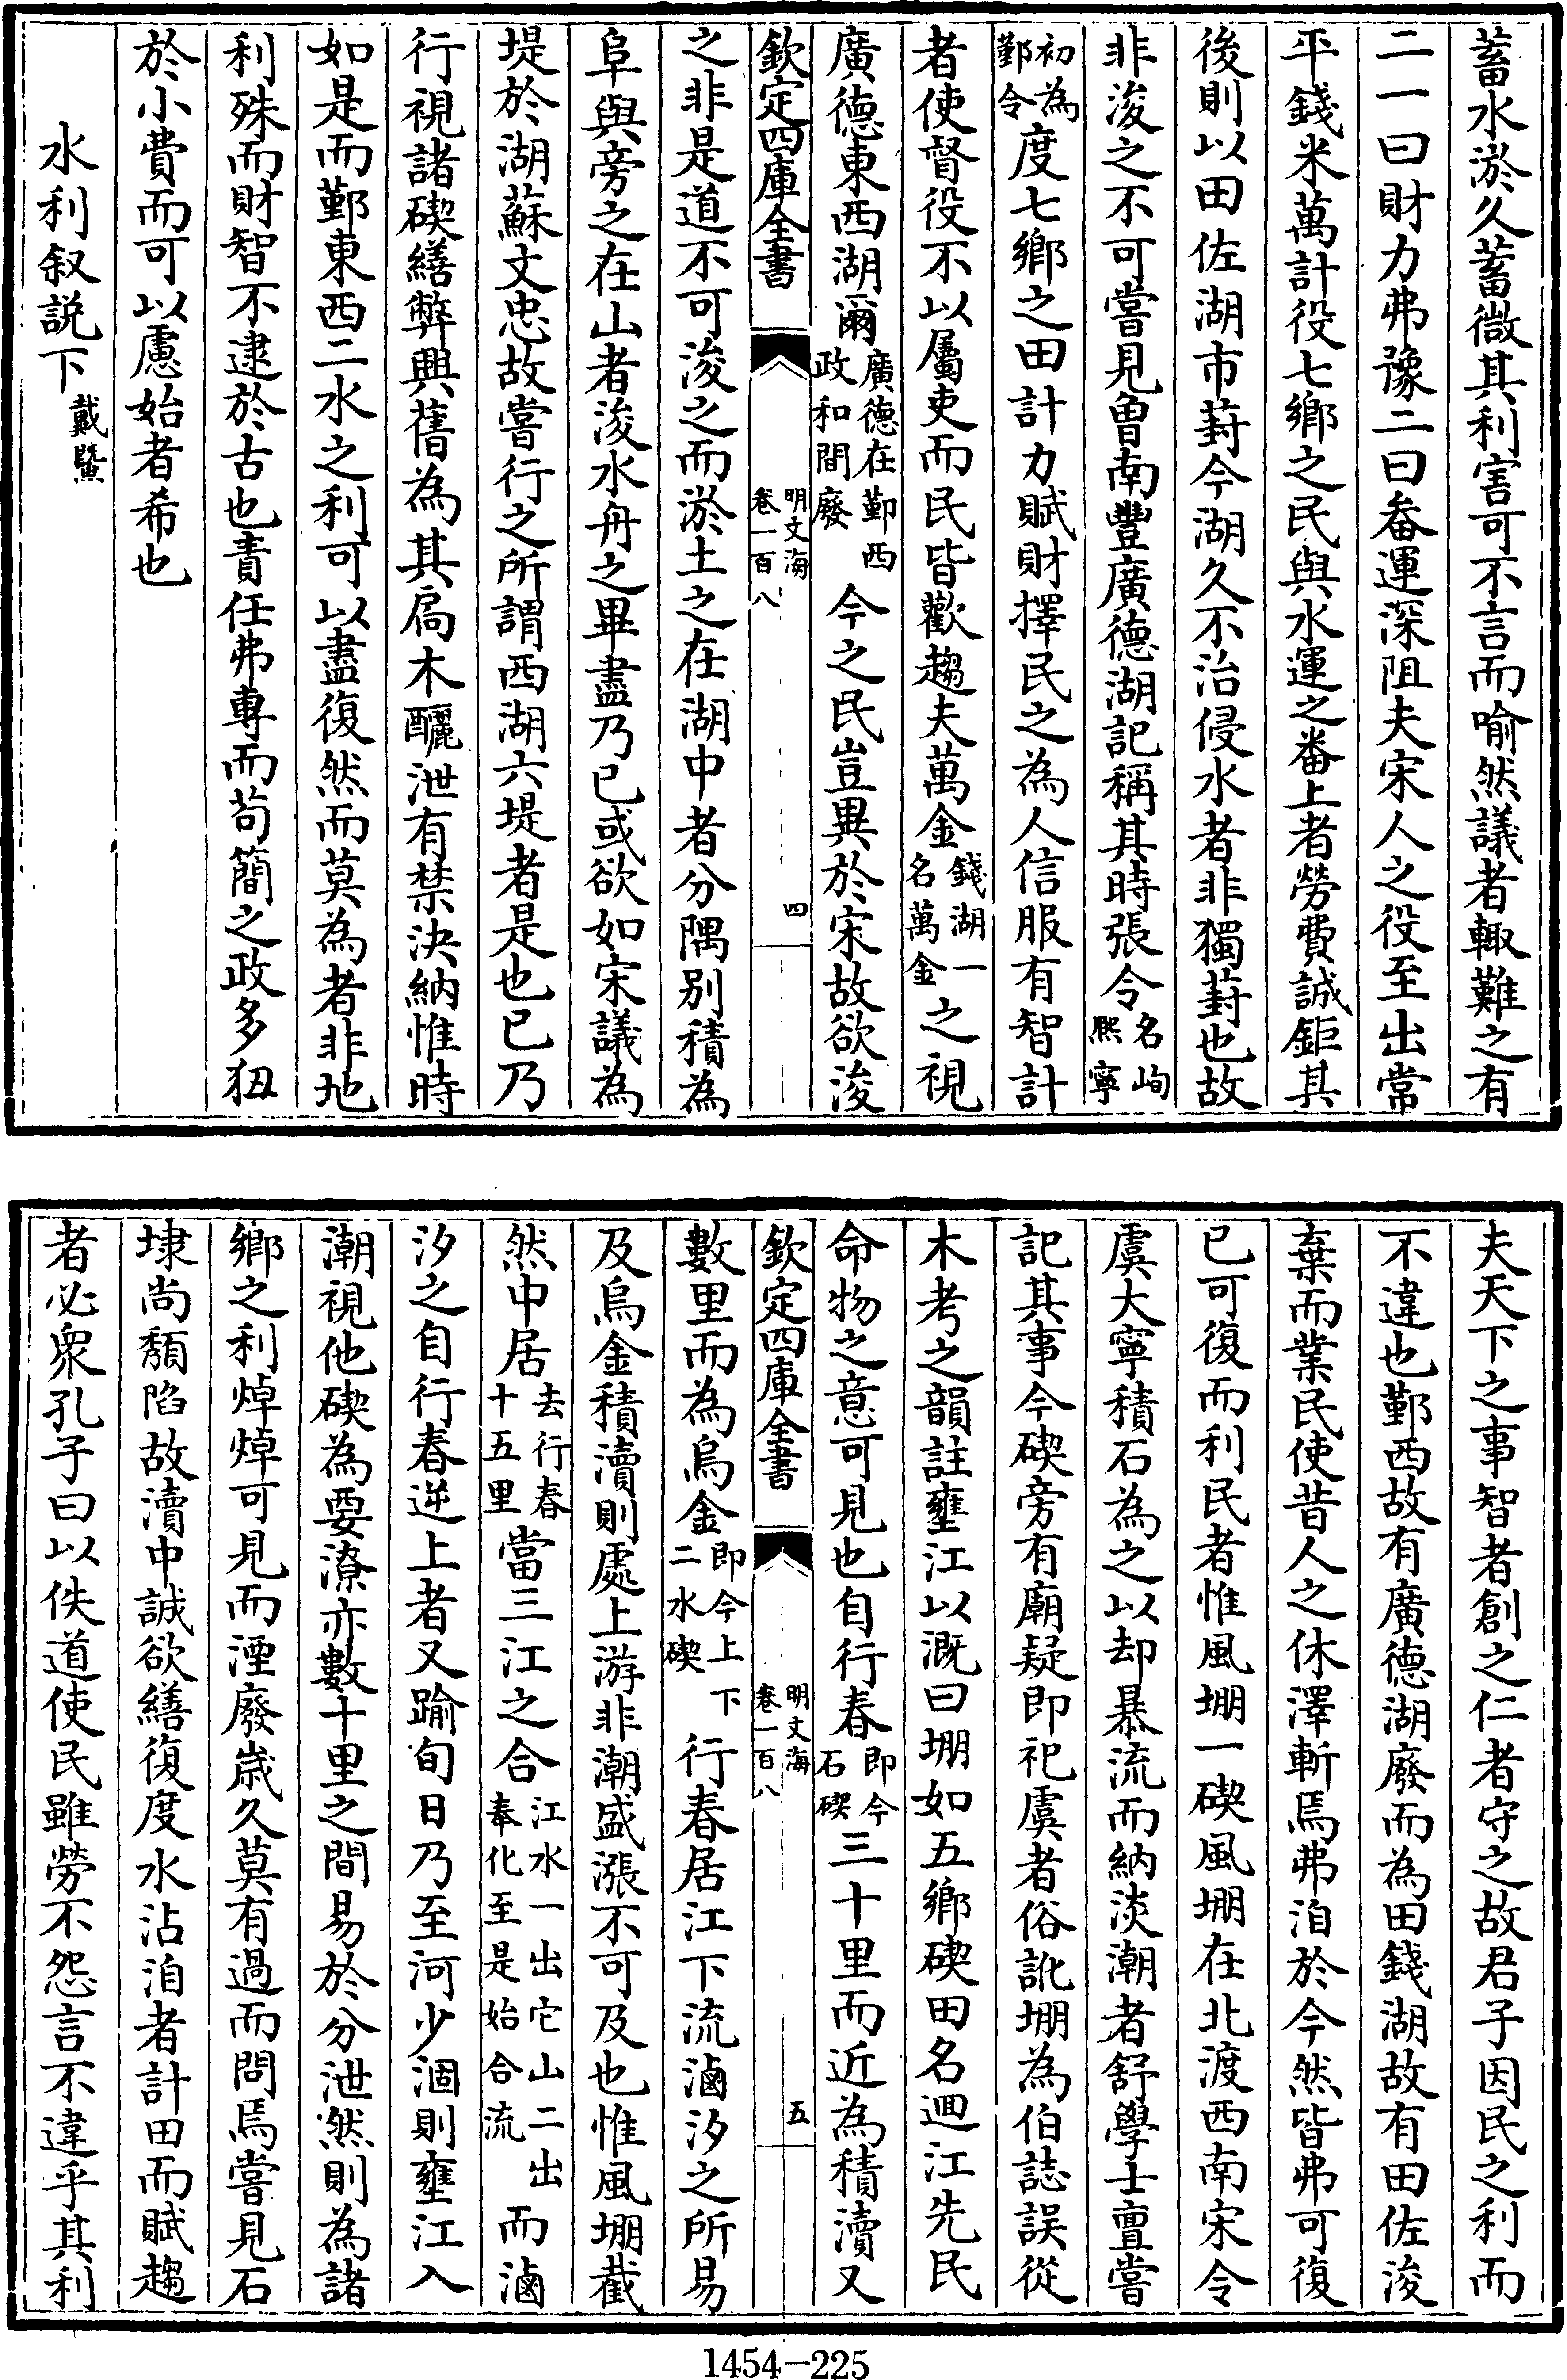 蓄水淤久蓄微其利害可不言而喻然議者輙難之有
二一曰財力弗豫二曰畚運深阻夫宋人之役至出常
平錢米萬計役七鄉之民與水運之畚上者勞費誠鉅其
後則以田佐湖市葑今湖久不治侵水者非獨葑也故
非浚之不可嘗見曾南豐廣德湖記稱其時張令名峋熈寧
初為鄞令度七鄉之田計力賦財擇民之為人信服有智計
者使督役不以屬吏而民皆歡趨夫萬金錢湖一名萬金之視
廣德東西湖爾廣德在鄞西政和間廢今之民豈異於宋故欲浚
欽定四庫全書 明文海 卷一百八 四
之非是道不可浚之而淤土之在湖中者分隅别積為
阜與旁之在山者浚水舟之畢盡乃已或欲如宋議為
堤於湖蘇文忠故嘗行之所謂西湖六堤者是也已乃
行視諸碶繕弊興舊為其扃木釃泄有禁決納惟時
如是而鄞東西二水之利可以盡復然而莫為者非地
利殊而財智不逮於古也責任弗專而茍簡之政多狃
於小費而可以慮始者希也
水利叙説下 戴鱀
夫天下之事智者創之仁者守之故君子因民之利而
不違也鄞西故有廣德湖廢而為田錢湖故有田佐浚
棄而業民使昔人之休澤斬焉弗洎於今然皆弗可復
已可復而利民者惟風堋一碶風堋在北渡西南宋令
虞大寧積石為之以却暴流而納淡潮者舒學士亶嘗
記其事今碶旁有廟疑即祀虞者俗訛堋為伯誌誤從
木考之韻註壅江以溉曰堋如五鄉碶田名迴江先民
命物之意可見也自行春即今石碶三十里而近為積瀆又
欽定四庫全書 明文海 卷一百八 五
數里而為烏金即今上下二水碶行春居江下流滷汐之所易
及烏金積瀆則處上游非潮盛漲不可及也惟風堋截
然中居去行春十五里當三江之合江水一出它山二出奉化至是始合流而滷
汐之自行春逆上者又踰旬日乃至河少涸則壅江入
潮視他碶為要潦亦數十里之間易於分泄然則為諸
鄉之利焯焯可見而湮廢嵗久莫有過而問焉嘗見石
埭尚頽陷故瀆中誠欲繕復度水沾洎者計田而賦趨
者必衆孔子曰以佚道使民雖勞不怨言不違乎其利
1454-225